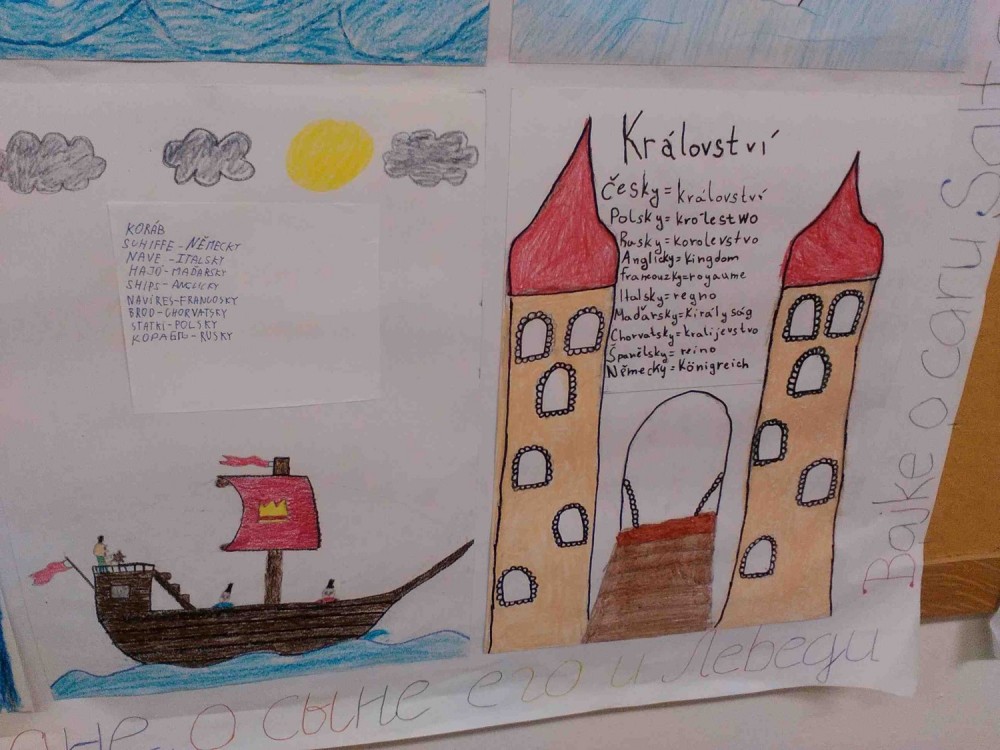 KORÁB
SCHIFFE - NĚMECKY
NAVE - ITALSKY
HAJÓ - MAĎARSKY
SHIPS - ANGLICKY
NAVIRES - FRANCOSKY
BROD - CHORVATSKY
STATKI - POLSKY
КОРАБЛЬ - RUSKY
Království
Česky = království
Polsky = krolestwo
Rusky = korolevstvo
Anglicky = kingdom
Framouzky = royaume
Italsky = regno
Maďarsky = Királyság
Chorvatsky = kralijevstvo
Španělsky = reino
Německy = Königreich
Bajke o caru Salt
о сыне его и Лебеди